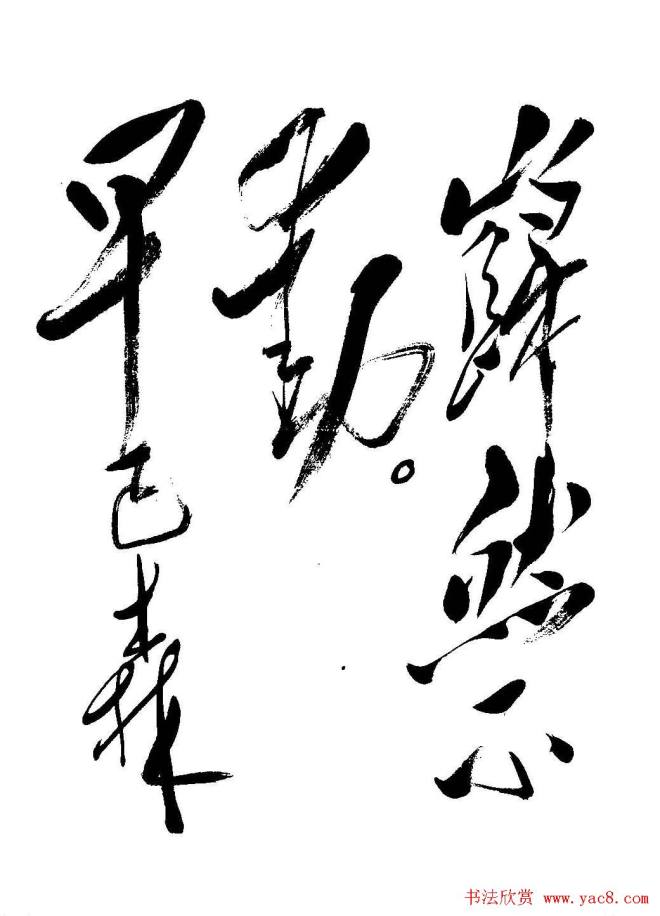 巋然不
動。
早已森
书法欣赏 www.yac8.com